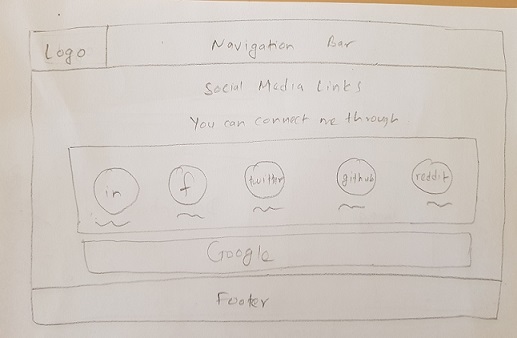 Logo
Navigation Bar
Social Media Links
You can connect me through
in
f
twitter
github
reddit
Google
Footer